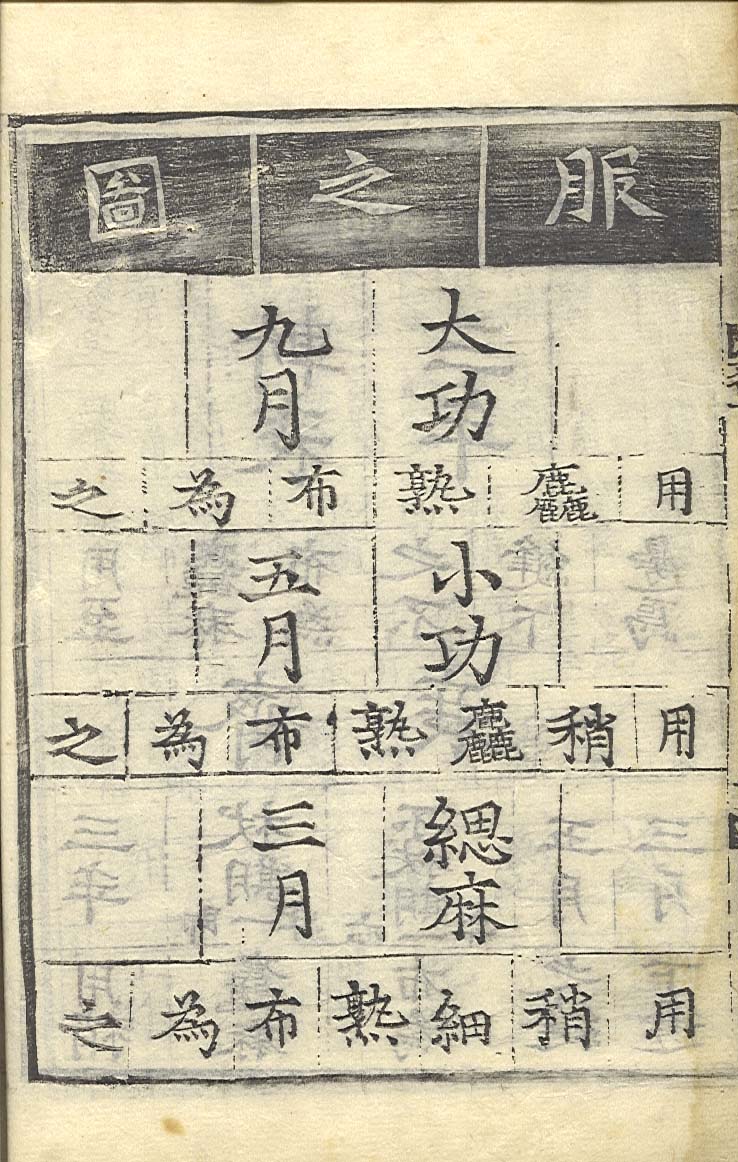 服之圖
大功
九月
用麤熟布為之
小功
五月
用稍麤熟布為之
緦麻
三月
用稍細熟布為之